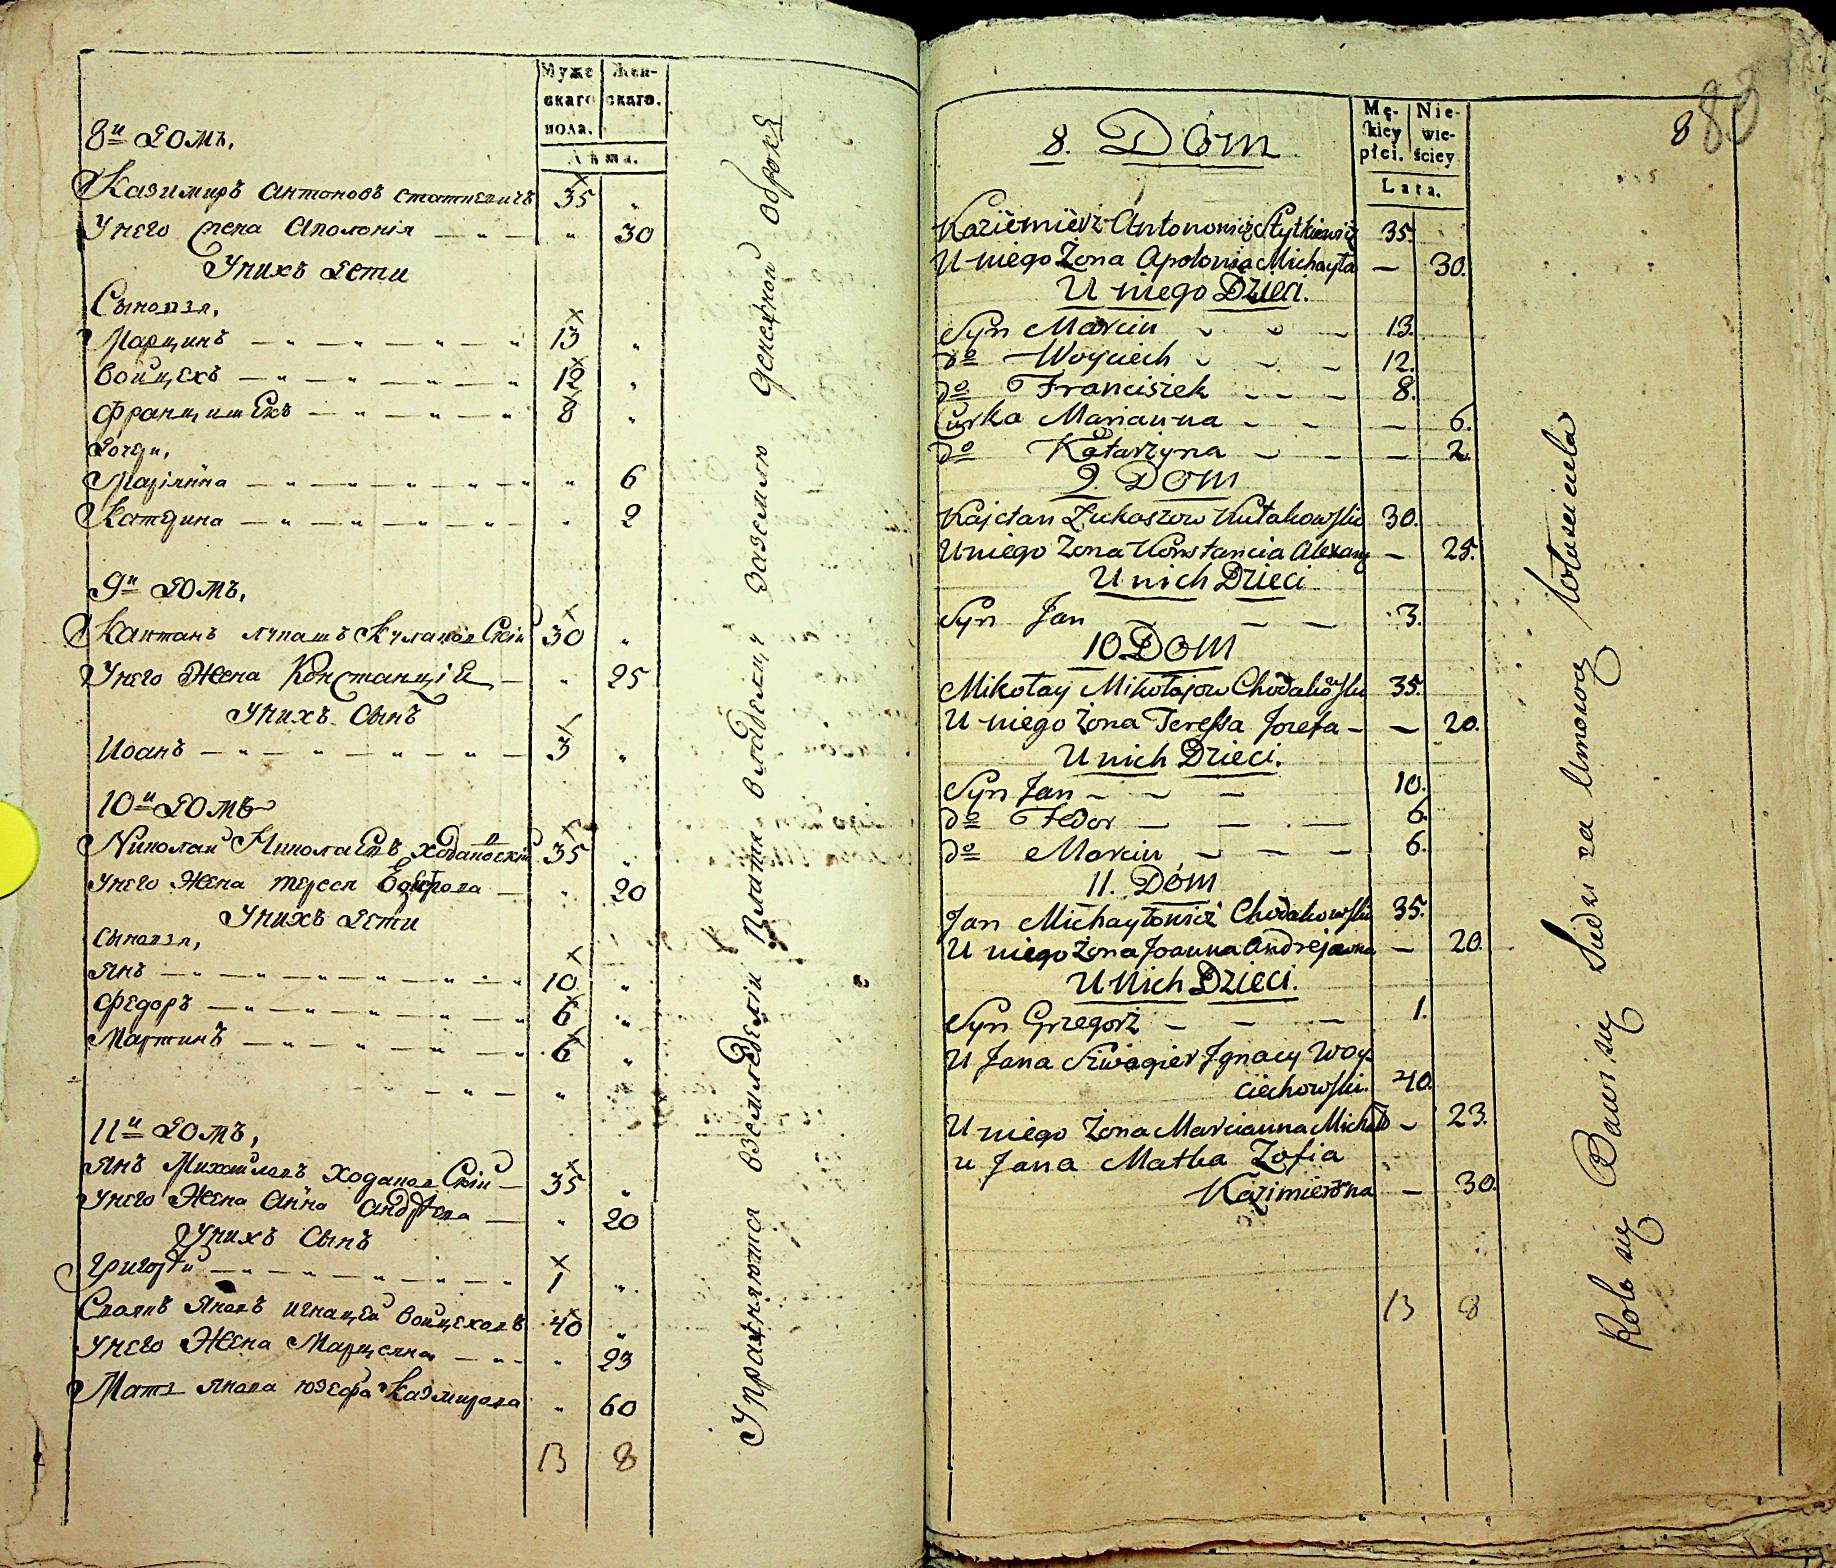 Муже
скаго
пола.
Жен-
скаго.
Лѣта.
8й Домъ,
Казимиръ Антоновъ Статкевичъ 35 „
У него жена Аполонія — „ — „ 30
У нихъ Дети
Сыновья,
Марцинъ — „ — „ — „ — „ 13 „
Войцехъ — „ — „ — „ — „ 12 „
Францишекъ — „ — „ — „ 8 „
Дочери,
Маріянна — „ — „ — „ — „ — „ „ 6
Катерина — „ — „ — „ — „ — „ 2
9й Домъ,
Каетанъ Лукашъ Кулаковскій 30 „
У него Жена Констанція — „ 25
У нихъ Сынъ
Иоанъ — „ — „ — „ — „ — 3 „
10й Домъ
Николай Николаевъ Ходаковскій 35 „
У него Жена Тереса — „ 20
У нихъ Дети
Сыновья,
Янъ — „ — „ — „ — „ — „ 10 „
Федоръ — „ — „ — „ — „ 6 „
Мартинъ — „ — „ — „ — „ 6 „
„ — „ — „
11й Домъ,
Янъ Михайловъ Ходаковскій — 35 „
У него Жена Анна Андреева — „ 20
У нихъ Сынъ
Григорій — „ — „ — „ — „ — „ 1 „
Сваякъ Яновъ Игнацей Войцеховъ 40 „
У него Жена Марцеяна — „ „ 23
Мать Янова Юзефа Казмирова „ 60
13 8
Упражняются вземледелии Платя владелицу Заземлю денежной оброкъ
8 83
Mę-
skiey
płci.
Nie-
wie-
ściey
Lata.
8. Dom
Kaziemierz Antonowicz Stytkiewicz 35.
U niego Żona Apolonia Michayła — 30.
U niego Dzieci.
Syn Marcin 13.
do Woyciech 12.
do Franciszek 8.
Curka Marianna — 6.
do Katarzyna — 2.
9. Dom
Kajetan Łukaszow Kułakowski 30.
U niego Żona Konstancia Alexan — 25.
U nich Dzieci
Syn Jan — — 3.
10. Dom
Mikołay Mikołajow Chodakowski 35.
U niego Żona Teressa Jozefa — — 20.
U nich Dzieci.
Syn Jan — — — 10.
do Fedor — — — 6.
do Marcin — — — 6.
11. Dom
Jan Michayłowicz Chodakowski 35.
U niego Żona Joanna Andrejewna — 20.
U Nich Dzieci.
Syn Grzegorz — — — 1.
U Jana Szwagier Jgnacy Woy-
ciechowski. 40.
U niego Żona Marcianna Michało — 23.
u Jana Matka Zofia
Kazimierowna — 30.
13 8
Rolo się Bawi się Siedzi za Umową